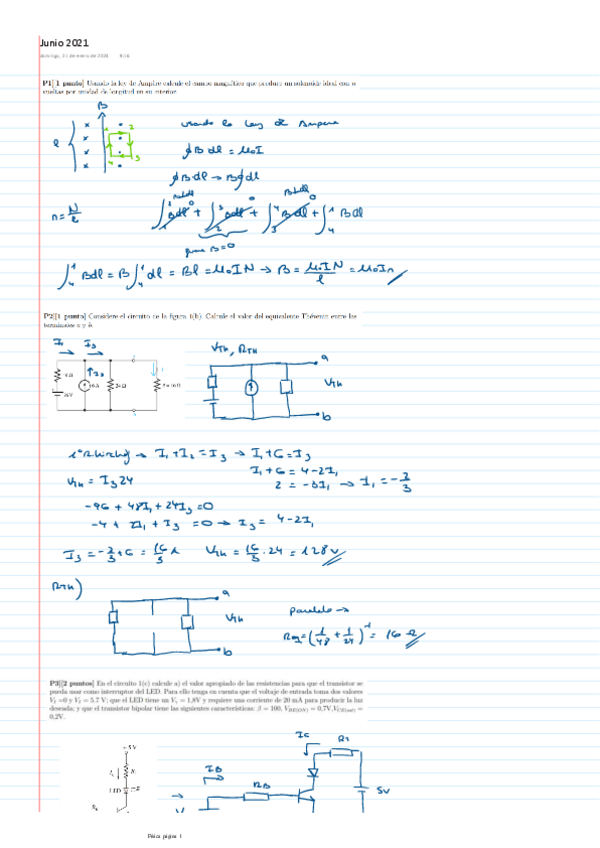 Junio 2021
P1[1 punto] Usando la ley de Ampère calcule el campo magnético que produce un solenoide ideal con n
vueltas por unidad de longitud en su interior.
B
l
x
x
x
x
1 2
4 3
usando la ley de Ampere
∮B dl = μ₀I
∮B dl → B∮dl
n = N/l
∫₁² Bdl + ∫₂³ Bdl + ∫₃⁴ Bdl + ∫₄¹ Bdl
B=0
∫₄¹ Bdl = B∫₄¹ dl = Bl = μ₀IN → B = μ₀IN/l = μ₀In
P2[1 punto] Considere el circuito de la figura 1(b). Calcule el valor del equivalente Thévenin entre los
terminales a y b.
I₁ I₃
I₂
6A
VTH, RTH
a
VTh
b
Kirchhoff → I₁+I₂=I₃ → I₁+6=I₃
I₁+6 = 4-2I₁
2 = -3I₁ → I₁ = -2/3
VTh = I₃24
-96 + 48I₁ + 24I₃ = 0
-4 + 2I₁ + I₃ = 0 → I₃ = 4-2I₁
I₃ = -2/3+6 = 16/3 A VTh = 16/3 · 24 = 128V
RTH)
a
VTh
b
Paralelo →
Req = (1/48 + 1/24)⁻¹ = 16 Ω
P3[2 puntos] En el circuito 1(c) calcule a) el valor apropiado de las resistencias para que el transistor se
pueda usar como interruptor del LED. Para ello tenga en cuenta que el voltaje de entrada toma dos valores
V₁ =0 y V₁ = 5.7 V; que el LED tiene un Vγ = 1,8V y requiere una corriente de 20 mA para producir la luz
deseada; y que el transistor bipolar tiene las siguientes características: β = 100, VBE(ON) = 0,7V, VCE(sat) =
0,2V.
+5V
LED
IB
RB
IC
R1
5V
Física página 1